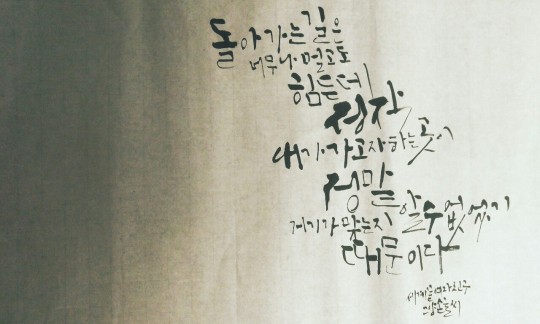 돌아가는 길은
너무나 멀고도
힘든데
정작
내가 가고자 하는 곳이
정말
거기가 맞는지 알 수 없었기
때문이다
여자친구
손글씨